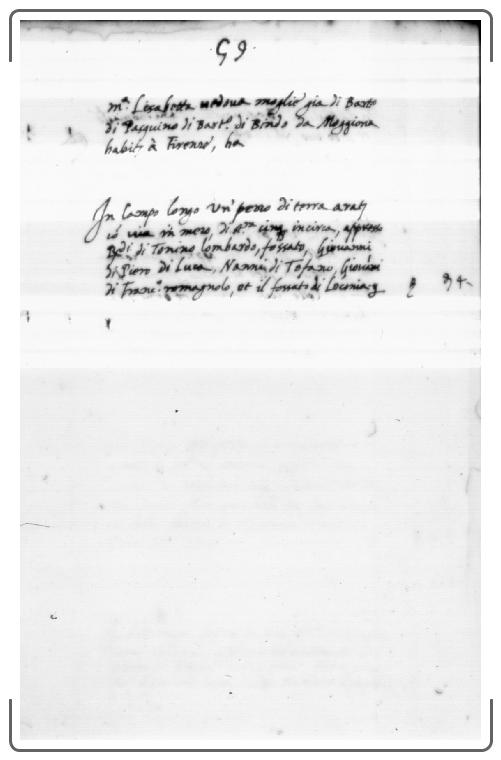 59.
m.ª Lisabetta vedova moglie già di Bart.o
di Pasquino di Bart.o di Bindo da Moggiona
habit. à Firenze, ha
In Campo longo un' pezzo di terra arat.
cō via in mezo, di st.ra cinq incirca, appresso
R.di di Tonino lombardo, fossato, Giovanni
di Piero di Luca, Nanni di Tofano, Giovāni
di Franc.o romagnolo, et il fossato di